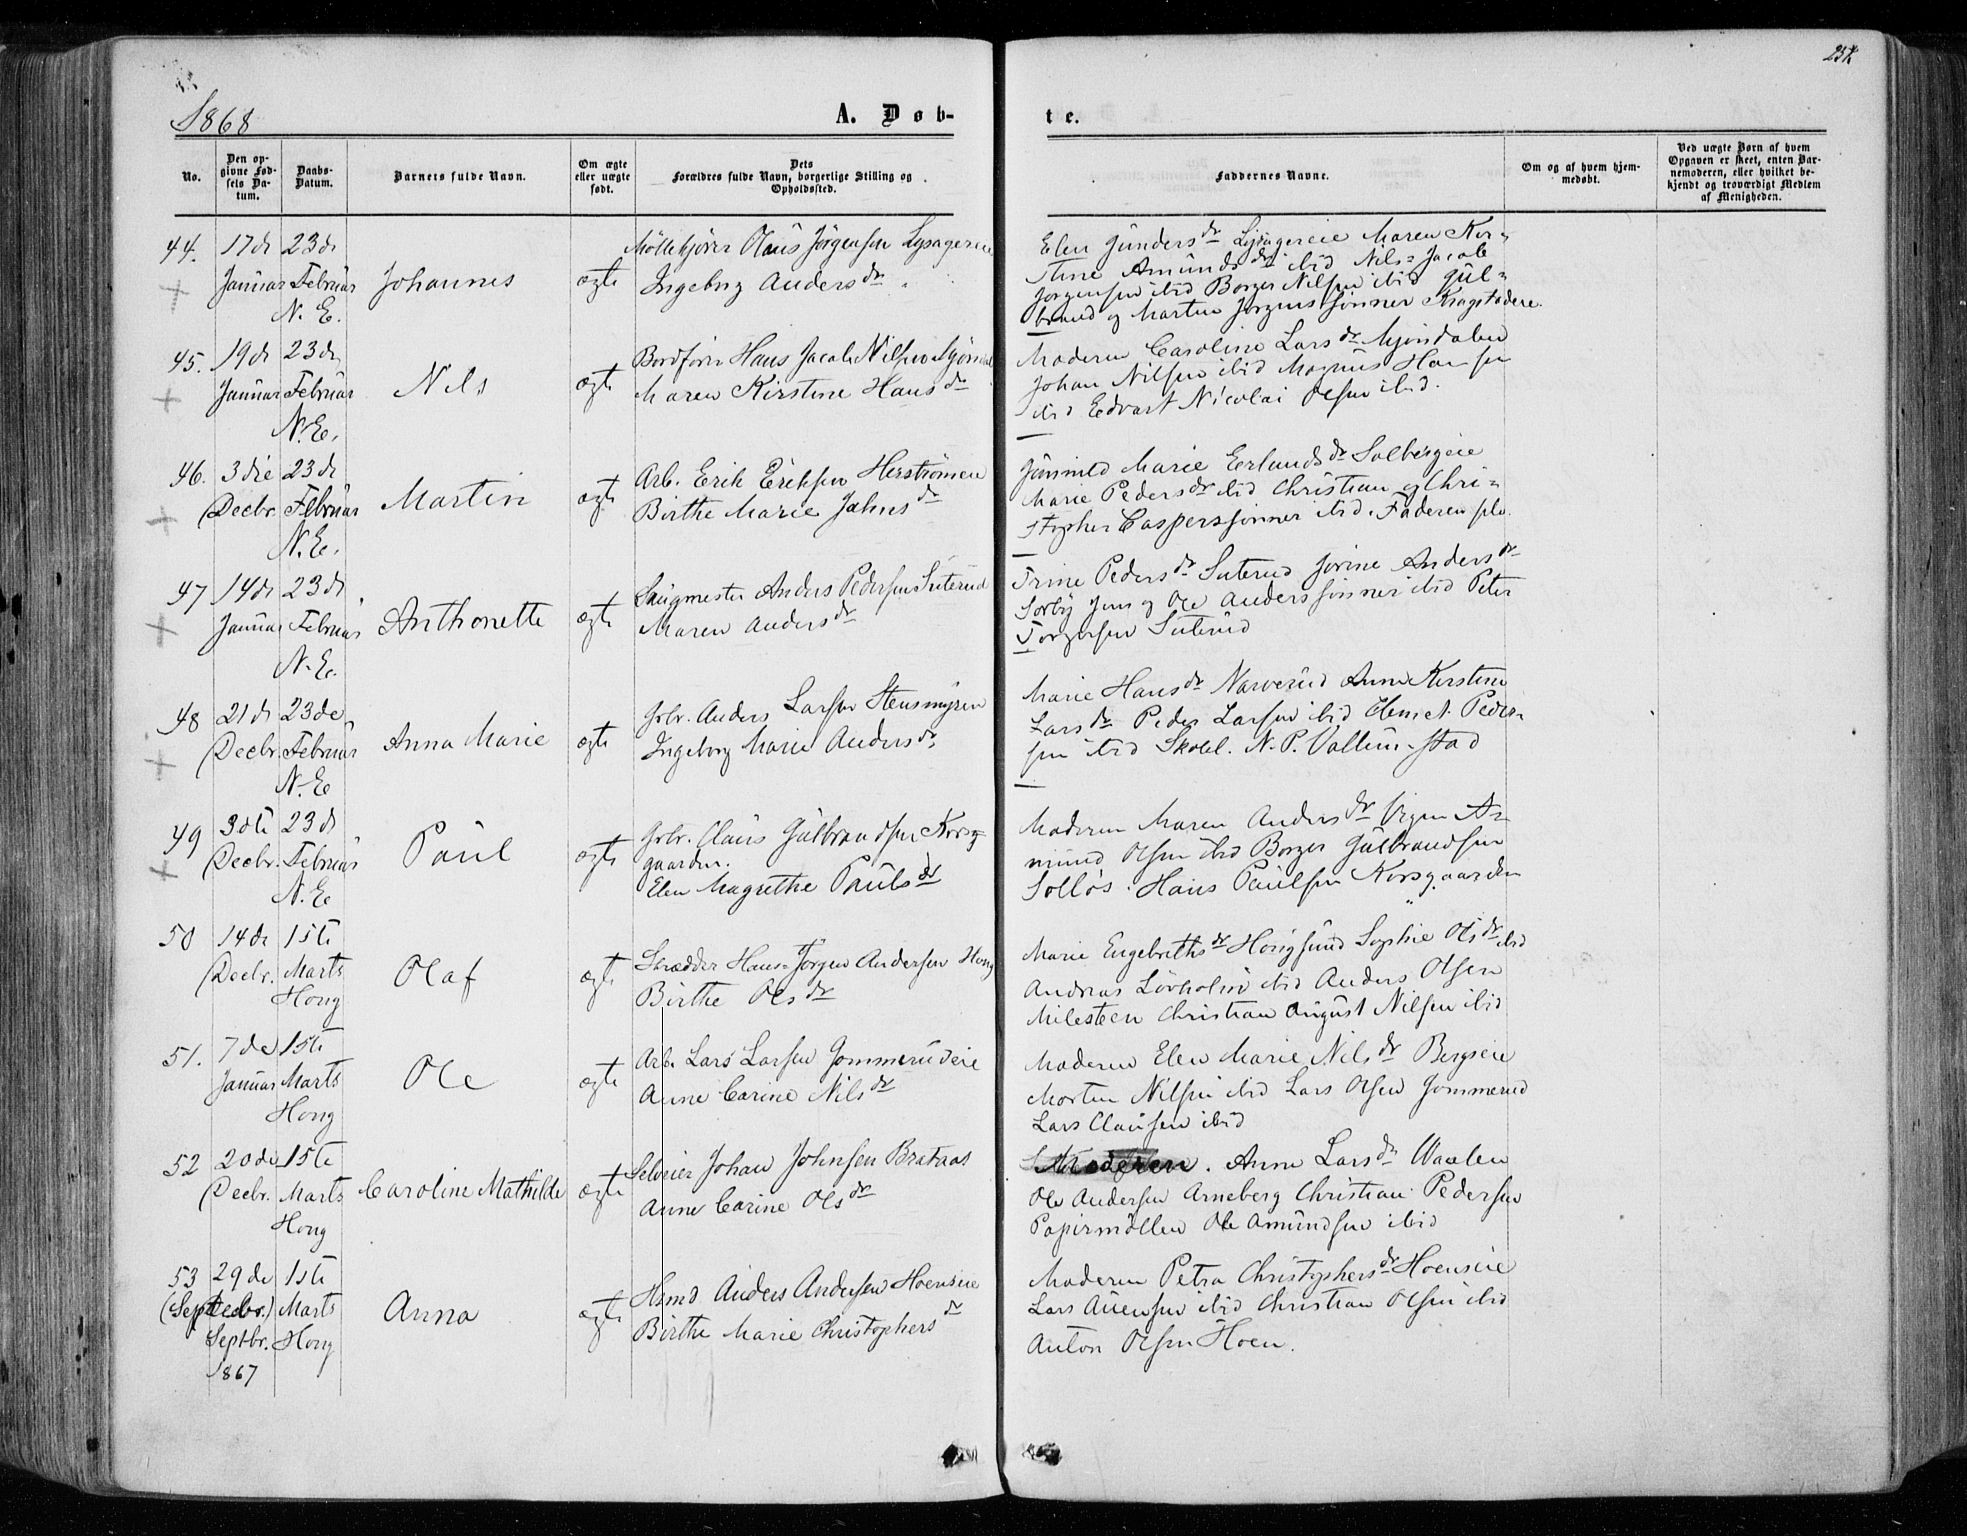 252
1868
A. Døb-
te.
No.
Den op-
givne Fød-
sels Da-
tum.
Daabs-
Datum.
Barnets fulde Navn.
Om ægte
eller uægte
født.
Dets
Forældres fulde Navn, borgerlige Stilling og
Opholdssted.
Faddernes Navne.
Om og af hvem hjem-
medøbt.
Ved uægte Børn af hvem
Opgaven er skeet, enten Bar-
nemoderen, eller hvilket be-
kjendt og troværdigt Medlem
af Menigheden.
44. 17de Januar
23de Februar N. E.
Johannes
ægte
Møllekjører Olaus Jørgensen Lysagereie
Ingebrg Andersdr
Elen Gundersdr Lysagereie Maren Kir-
stine Amundsdr ibid Nils Jacob
Jørgensen ibid Borger Nilsen ibid Gul-
brand og Martin Jørgenssønner Kragstadere
45. 19de Januar
23de Februar N. E.
Nils
ægte
Bordfører Hans Jacob Nilsen Mjøndal
Maren Kirstine Hansdr
Moderen Caroline Larsdr Mjøndalen
Johan Nilsen ibid Magnus Hansen
ibid Edvart Nicolai Olsen ibid.
46. 3die Decbr.
23de Februar N. E.
Martin
ægte
Arb. Erik Eriksen Herstrømen
Birthe Marie Jahnsdr
Gunnild Marie Erlandsdr Solbergeie
Marie Pedersdr ibid Christian og Chri-
stopher Casperssønner ibid. Faderen slv.
47 14de Januar
23de Februar N. E.
Anthonette
ægte
Saugmester Anders Pedersen Suterud
Maren Andersdr
Trine Pedersdr Suterud Jørine Andersdr
Sørby Jens og Ole Anderssønner ibid Peter
Torgersen Suterud
48 21de Decbr.
23de Februar N. E.
Anna Marie
ægte
Grbr. Anders Larsen Stensmyren
Ingeborg Marie Andersdr
Marie Hansdr Narverud Anne Kirstine
Larsdr Peder Larsen ibid Peder-
sen ibid Skolel. N. P.
49 3die Decbr.
23de Februar N. E.
Paul
ægte
Grbr. Claus Gulbrandsen Kors-
gaarden.
Elen Magrethe Paulsdr
Moderen Maren Andersdr Vegen A-
mund Olsen ibid Borger Gulbrandsen
Solløs. Hans Paulsen Korsgaarden
50 14de Decbr.
1ste Marts Houg
Olaf
ægte
Skrædder Hans Jørgen Andersen Houg
Birthe Olsdr
Marie Engebrethsdr Hougsund Sophie Olsdr ibid
Andreas Løvholm ibid Anders Olsen
Milesteen Christian August Nilsen ibid
51. 7de Januar
1ste Marts Houg
Ole
ægte
Arb. Lars Larsen Gommerudeie
Anne Carine Nilsdr
Moderen Elen Marie Nilsdr Bergseie
Morten Nilsen ibid Lars Olsen Gommerud
Lars Clausen ibid
52 20de Decbr.
1ste Marts Houg
Caroline Mathilde
ægte
Selveier Johan Johnsen Brataas
Anne Carine Olsdr
Moderen. Anne Larsdr Waalen
Ole Andersen Arneberg Christian Pedersen
Papirmøllen Ole Amundsen ibid
53 29de Septbr. 1867
1ste Marts Houg
Anna
ægte
Hsmd Anders Andersen Hoenseie
Birthe Marie Christophersdr
Moderen Petra Christophersdr Hoenseie
Lars Auensen ibid Christian Olsen ibid
Anton Olsen Hoen.